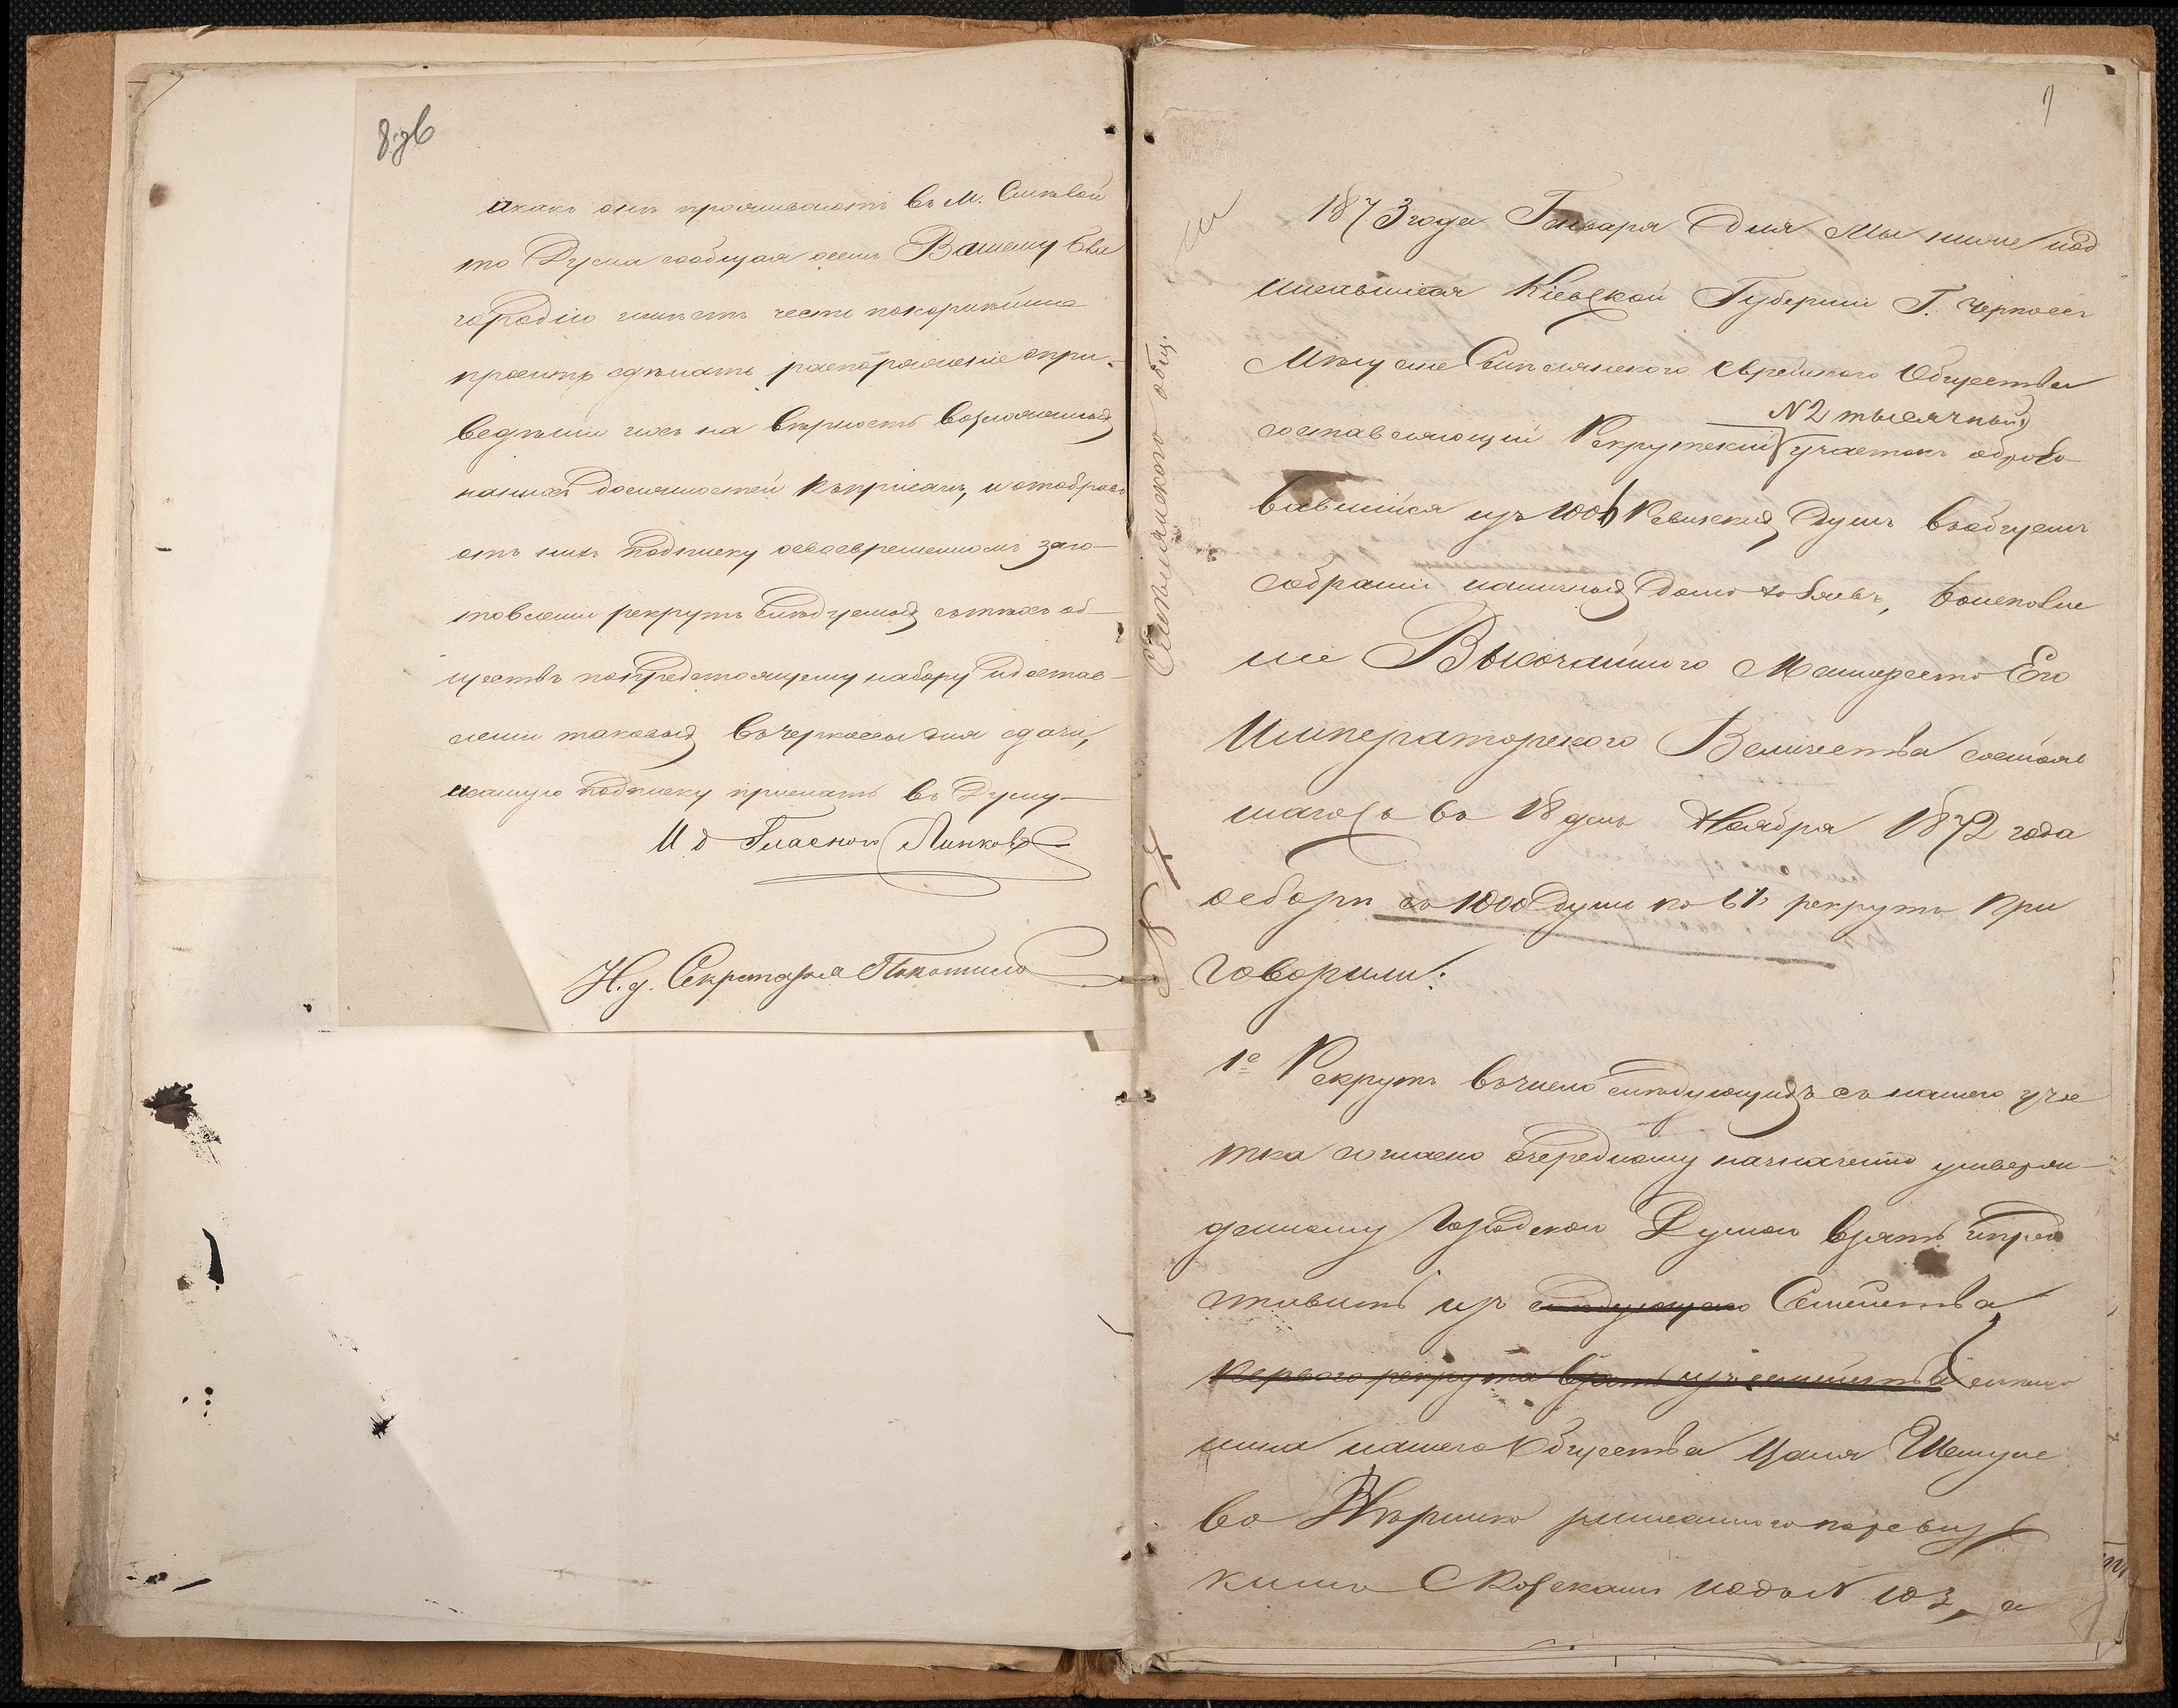 8 зв
акакъ они проживаютъ въ М. Смѣлой
то Дума сообщая осемъ Вашему Бла
городію имѣетъ честь покорнѣйше
проситъ сдѣлать распоряженіе опри-
веденіи ихъ на вѣрность возложенныхъ
нанихъ должностей къприсягѣ, и отобравъ
отъ нихъ подписку освоевременномъ заго-
товленіи рекрутъ слѣдуемыхъ сътѣхъ об-
ществъ попредстоящему набору идостав-
леніи таковыхъ въЧеркассы для сдачи,
исамую подписку прислать въ Думу
И д Гласного
Н. д. Секретаря
9
1873 года Генваря дня Мы ниже под
писавшіеся Кіевской Губерніи Г. Черкасъ
Мѣщане Смѣлянского Еврейского Общества
№ 2 тысячный
составляющій Рекрутскій участокъ образо
вавшійся изъ Ревизскихъ Душъ вобщемъ
собраніи наличныхъ домохозяевъ, воисполне
ніе Высочайшого Манифеста Его
Императорского Величества состояв
шагося въ 18 день Ноября 1872 года
осборѣ съ 1000 душъ по 6 рекрутъ при
говорили:
1е Рекрутъ вчисло слѣдующихъ съ нашего уча
тка согласно очередному назначенію утверж
денному Городской Думой взять ипред
ставить изъ слѣдующаго Семейства
Первого рекрута взять изъ семейства мѣща
нина нашего Общества
во ревиз
кимъ Сказкамъ подъ № 103, а
Смѣлянского общ.